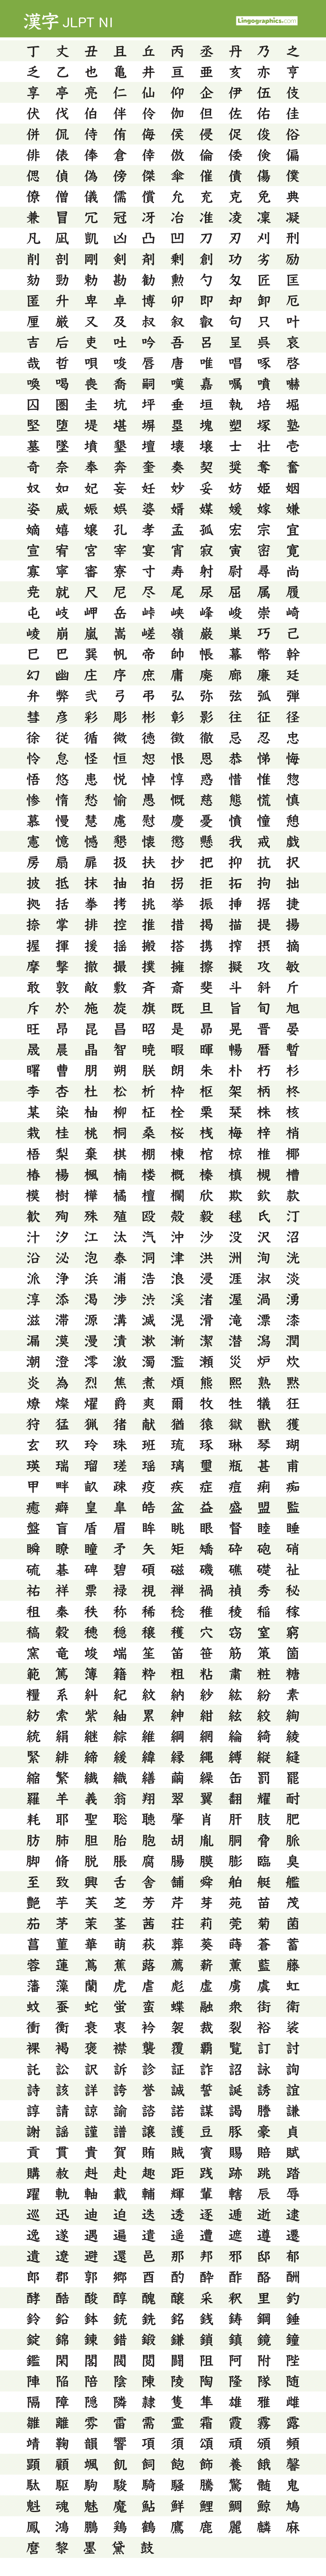 漢字 JLPT N1
Lingographics.com
丁 丈 丑 且 丘 丙 丞 丹 乃 之
乏 乙 也 亀 井 亘 亜 亥 亦 亨
享 亭 亮 仁 仙 仰 企 伊 伍 伎
伏 伐 伯 伴 伶 伽 但 佐 佑 佳
併 侃 侍 侑 侮 侯 侵 促 俊 俗
俳 俵 俸 倉 倖 倣 倫 倭 倹 偏
偲 偵 偽 傍 傑 傘 催 債 傷 僕
僚 僧 儀 儒 償 允 充 克 免 典
兼 冒 冗 冠 冴 冶 准 凌 凛 凝
凡 凪 凱 凶 凸 凹 刀 刃 刈 刑
削 剖 剛 剣 剤 剰 創 功 劣 励
劾 勁 勅 勘 勧 勲 勺 匁 匠 匡
匿 升 卑 卓 博 卯 即 却 卸 厄
厘 厳 又 及 叔 叙 叡 句 只 叶
吉 后 吏 吐 吟 吾 呂 呈 呉 哀
哉 哲 唄 唆 唇 唐 唯 唱 啄 啓
喚 喝 喪 喬 嗣 嘆 嘉 嘱 噴 嚇
囚 圏 圭 坑 坪 垂 垣 執 培 堀
堅 堕 堤 堪 塀 塁 塊 塑 塚 塾
墓 墜 墳 墾 壇 壊 壌 士 壮 壱
奇 奈 奉 奔 奎 奏 契 奨 奪 奮
奴 如 妃 妄 妊 妙 妥 妨 姫 姻
姿 威 娠 娯 婆 婿 媒 媛 嫁 嫌
嫡 嬉 嬢 孔 孝 孟 孤 宏 宗 宜
宣 宥 宮 宰 宴 宵 寂 寅 密 寛
寡 寧 審 寮 寸 寿 射 尉 尋 尚
尭 就 尺 尼 尽 尾 尿 屈 属 履
屯 岐 岬 岳 峠 峡 峰 峻 崇 崎
崚 崩 嵐 嵩 嵯 嶺 巌 巣 巧 己
巳 巴 巽 帆 帝 帥 帳 幕 幣 幹
幻 幽 庄 序 庶 庸 廃 廊 廉 廷
弁 弊 弐 弓 弔 弘 弥 弦 弧 弾
彗 彦 彩 彫 彬 彰 影 往 征 径
徐 従 循 微 徳 徴 徹 忌 忍 忠
怜 怠 怪 恒 恕 恨 恩 恭 悌 悔
悟 悠 患 悦 悼 惇 惑 惜 惟 惣
惨 惰 愁 愉 愚 慨 慈 態 慌 慎
慕 慢 慧 慮 慰 慶 憂 憤 憧 憩
憲 憶 憾 懇 懐 懲 懸 我 戒 戯
房 扇 扉 扱 扶 抄 把 抑 抗 択
披 抵 抹 抽 拍 拐 拒 拓 拘 拙
拠 括 拳 拷 挑 挙 振 挿 据 捷
捺 掌 排 控 推 措 掲 描 提 揚
握 揮 援 揺 搬 搭 携 搾 摂 摘
摩 撃 撤 撮 撲 擁 擦 擬 攻 敏
敢 敦 敵 敷 斉 斎 斐 斗 斜 斤
斥 於 施 旋 旗 既 旦 旨 旬 旭
旺 昂 昆 昌 昭 是 昴 晃 晋 晏
晟 晨 晶 智 暁 暇 暉 暢 暦 暫
曙 曹 朋 朔 朕 朗 朱 朴 朽 杉
李 杏 杜 松 析 枠 枢 架 柄 柊
某 染 柚 柳 柾 栓 栗 栞 株 核
栽 桂 桃 桐 桑 桜 桟 梅 梓 梢
梧 梨 棄 棋 棚 棟 棺 椋 椎 椰
椿 楊 楓 楠 楼 概 榛 槙 槻 槽
模 樹 樺 橘 檀 欄 欣 欺 欽 款
歓 殉 殊 殖 殴 殻 毅 毬 氏 汀
汁 汐 江 汰 汽 沖 沙 没 沢 沼
沿 泌 泡 泰 洞 津 洪 洲 洵 洸
派 浄 浜 浦 浩 浪 浸 涯 淑 淡
淳 添 渇 渉 渋 渓 渚 渥 渦 湧
滋 滞 源 溝 滅 滉 滑 滝 漂 漆
漏 漠 漫 漬 漱 漸 潔 潜 潟 潤
潮 澄 澪 激 濁 濫 瀬 災 炉 炊
炎 為 烈 焦 煮 煩 熊 熙 熟 黙
燎 燦 燿 爵 爽 爾 牧 牲 犠 狂
狩 猛 猟 猪 献 猶 猿 獄 獣 獲
玄 玖 玲 珠 班 琉 琢 琳 琴 瑚
瑛 瑞 瑠 瑳 瑶 璃 璽 瓶 甚 甫
甲 畔 畝 疎 疫 疾 症 痘 痢 痴
癒 癖 皇 皐 皓 盆 益 盛 盟 監
盤 盲 盾 眉 眸 眺 眼 督 睦 睡
瞬 瞭 瞳 矛 矢 矩 矯 砕 砲 硝
硫 碁 碑 碧 碩 磁 磯 礁 礎 祉
祐 祥 票 禄 禎 禅 禍 禎 秀 秘
租 秦 秩 称 稀 稔 稚 稜 稲 稼
稿 穀 穂 穏 穣 穫 穴 窃 窒 窮
窯 竜 竣 端 笙 笛 笹 筋 策 箇
範 篤 簿 籍 粋 粗 粘 粛 粧 糖
糧 系 糾 紀 紋 納 紗 紘 紛 素
紡 索 紫 紬 累 紳 紺 絃 絞 絢
統 絹 継 綜 維 綱 網 綸 綺 綾
緊 緋 締 緩 緯 縁 縄 縛 縦 縫
縮 繁 繊 織 繕 繭 繰 缶 罰 罷
羅 羊 義 翁 翔 翠 翼 翻 耀 耐
耗 耶 聖 聡 聴 肇 肖 肝 肢 肥
肪 肺 胆 胎 胞 胡 胤 胴 脅 脈
脚 脩 脱 脹 腐 腸 膜 膨 臨 臭
至 致 興 舌 舎 舗 舜 舶 艇 艦
艶 芋 芙 芝 芳 芹 芽 苑 苗 茂
茄 茅 茉 茎 茜 荘 莉 莞 菊 菌
菖 菫 華 萌 萩 葬 葵 蒔 蒼 蓄
蓉 蓮 蔦 蔵 蕉 蕗 薦 薪 薫 藍 藤
藩 藻 蘭 虎 虐 彪 虚 虜 虞 虹
蚊 蚕 蛇 蛍 蛮 蝶 融 衆 街 衛
衝 衡 衰 衷 衿 袈 裁 裂 裕 裟
裸 褐 褒 襟 襲 覆 覇 覧 訂 討
託 訟 訳 訴 診 証 詐 詔 詠 詢
詩 該 詳 誇 誉 誠 誓 誕 誘 誼
諄 請 諒 諭 諮 諾 謀 謁 謄 謙
謝 謡 謹 譜 譲 護 豆 豚 豪 貞
貢 貫 貴 賀 賄 賊 賓 賜 賠 賦
購 赦 赳 赴 趣 距 践 跡 跳 踏
躍 軌 軸 載 輔 輝 輩 轄 辰 辱
巡 迅 迪 迫 迭 透 逐 逓 逝 逮
逸 遂 遇 遍 遣 遥 遭 遮 遵 遷
遺 遼 避 還 邑 那 邦 邪 邸 郁
郎 郡 郭 郷 酉 酌 酔 酢 酪 酬
酵 酷 酸 醇 醜 醸 采 釈 里 釣
鈴 鉛 鉢 銃 銑 銘 銭 鋳 鋼 錘
錠 錦 錬 錯 鍛 鎌 鎖 鎮 鏡 鐘
鑑 閑 閣 閥 閲 闘 阻 阿 附 陛
陣 陥 陪 陰 陳 陵 陶 隆 隊 随
隔 障 隠 隣 隷 隻 隼 雄 雅 雌
雛 離 雰 雷 需 霊 霜 霞 霧 露
靖 鞠 韻 響 項 須 頌 頑 頒 頻
顕 顧 颯 飢 飼 飽 飾 養 餓 馨
駄 駆 駒 駿 騎 騒 騰 驚 髄 鬼
魁 魂 魅 魔 鮎 鮮 鯉 鯛 鯨 鳩
鳳 鴻 鵬 鶏 鶴 鷹 鹿 麗 麟 麻
麿 黎 墨 黛 鼓